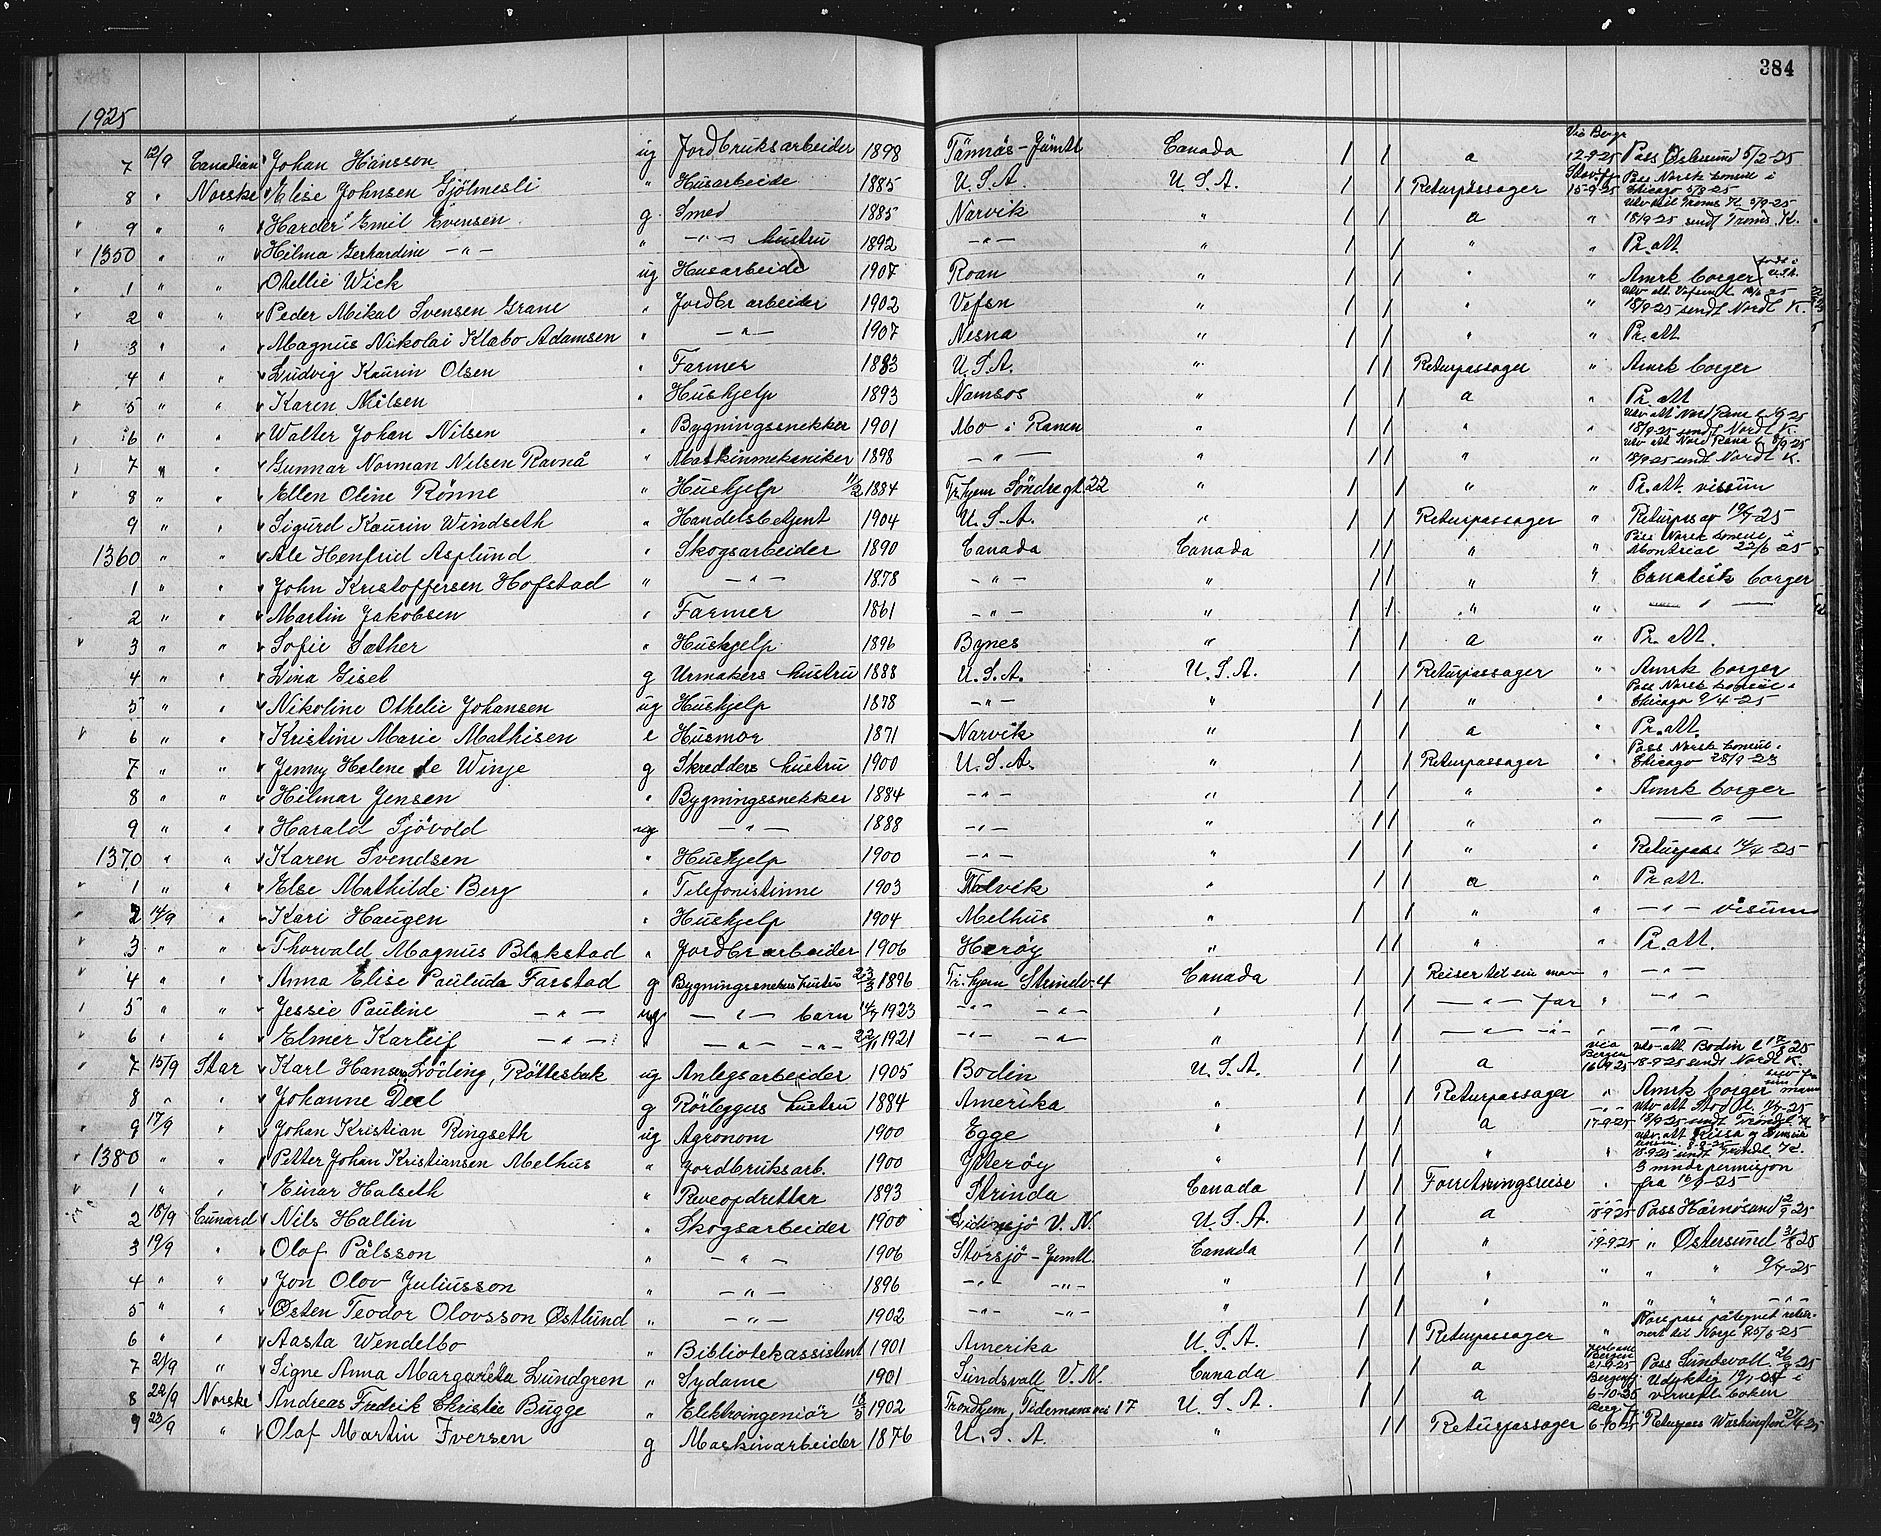 384
1925
Via Bergn
7 12/9 Canadian Johan Hansson ug Jordbruksarbeider 1898 Tännäs - Jämtl Canada / / a 12-9-25 Pass Østersund 5/2-25
8 " Norske Elise Johnsen Gjölmesli " Husarbeide 1885 U.S.A. U.S.A. / / Returpassager 15-9-25 Pass Norsk konsul i Chicago 5/3-25
9 " " Harder Emil Evensen g. Smed 1885 Narvik " / / a " 18/9-25 sendt Troms K.
1350 " " Hilma Gerhardine -"- " -"- hustru 1892 -"- " / / " " Pr. att
1 " " Othelie Wick ug Husarbeide 1907 Roan " / / " " Amrk borger
2 " " Peder Mikal Svensen Grane " Jordbr arbeider 1902 Vefsn " / / " " 18/9-25 sendt Nordl K.
3 " " Magnus Nikolai Klabo Adamsen " -"- 1907 Nesna " / / " " Pr. att
4 " " Ludvig Kaurin Olsen " Farmer 1883 U.S.A. " / / Returpassager " Amrk borger
5 " " Karen Nilsen " Hushjelp 1893 Namsos " / / a " Pr. att
6 " " Walter Johan Nilsen " Bygningssnekker 1901 Mo i Ranen " / / " " 18/9-25 sendt Nordl K.
7 " " Gunnar Norman Nilsen Ravnå " Maskinmekaniker 1898 -"- " / / " " 18/9-25 sendt Nordl K.
8 " " Ellen Oline Rönne " Hushjelp 11/2 1884 Tr.hjem Söndregt. 22 " / / " " Pr. att. visum
9 " " Sigurd Kaurin Windseth " Handelsbetjent 1904 U.S.A. " / / Returpassager " Returpas av 19/7-25
1360 " " Ale Henfrid Asplund " Skogsarbeider 1890 Canada Canada / / " " Pass Norsk konsul i Montreal 22/6 25
1 " " John Kristoffersen Hofstad " -"- 1878 -"- " / / " " Canadisk borger
2 " " Martin Jakobsen " Farmer 1861 -"- " / / " " -"-
3 " " Sofie Sæther " Hushjelp 1896 Bynes " / / a " Pr. att.
4 " " Lina Gisel g Urmakers hustru 1888 U.S.A. U.S.A. / / Returpassager " Amrk borger
5 " " Nikoline Othelie Johansen ug Hushjelp 1878 -"- " / / " " Pass Norsk konsul i Chicago 9/4-25
6 " " Kristine Marie Mathisen e Husmor 1871 Narvik " / / a " Pr. att.
7 " " Jenny Helene de Winje g Skredders hustru 1900 U.S.A. " / / Returpassager " Pass Norsk konsul i Chicago 28/9-23
8 " " Hilmar Jensen " Bygningssnekker 1884 -"- " / / " " Amrk borger
9 " " Harald Sjövold ug -"- 1888 -"- " / / " " -"-
1370 " " Karen Svendsen " Hushjelp 1900 -"- " / / " " Returpass 14/4-25
1 " " Else Mathilde Berg " Telefonistinne 1903 Talvik " / / a " Pr att.
2 14/9 " Kari Haugen " Hushjelp 1904 Melhus " / / " " -"- visum
3 " " Thorvald Magnus Blokstad " Jordbr arbeider 1906 Herøy " / / " " Pr. att.
4 " " Anna Elise Pauluda Farstad g Bygningssnekers hustru 23/3 1896 Tr.hjem Strindv. 4 Canada / / Reiser til sin man " -"-
5 " " Jessie Pauline -"- ug -"- barn 14/7 1923 -"- -"- " / / -"- far " -"-
6 " " Elmer Karleif -"- " -"- -"- 22/11 1921 -"- -"- " / / -"- -"- " -"-
7 15/9 Star Karl Hansen Löding, Röttesbak ug Anlegsarbeider 1905 Bodin U.S.A. / / a via Bergen 16/9 25 18-9-25 sendt Nordl K.
8 " " Johanne Dæl g Rörleggers hustru 1884 Amerika " / / Returpassager " Amrk borger
9 17/9 " Johan Kristian Ringseth ug Agronom 1900 Egge " / / a 17-9-25
1380 " " Petter Johan Kristiansen Melhus " Jordbruksarb. 1900 Ytterøy " / / " "
1 " " Einar Halseth " Reveopdretter 1893 Strinda Canada / / Forretningsreise " 3 mndr permisjon fra 16/9-25
2 18/9 Cunard Nils Hallin " Skogsarbeider 1900 Lidensjö V.N. U.S.A. / / a 18-9-25 Pass Härnösand 12/9 25
3 19/9 " Olof Pålsson " -"- 1906 Storsjö - Jemtl. Canada / / " 19-9-25 " Østersund 31/8 25
4 " " Jon Olov Juliusson " -"- 1896 -"- -"- " / / " " " " 9/7-25
5 " " Østen Teodor Olovsson Østlund " -"- 1902 -"- -"- " / / " " " " -"-
6 " " Aasta Wendelbo " Bibliotekassistent 1901 Amerika U.S.A. / / Returpassager " Norsk pass påtegnet returnert til Norge 25/6-25
7 21/9 " Signe Anna Margareta Lundgren " Sydame 1901 Sundsvall V.N. Canada / / a 21-9-25 Pass Sundsvall 26/8 25
8 22/9 Norske Andreas Fredrik Christie Bugge " Elektroingeniör 18/5 1902 Trondhjem, Tidemansvei 17 U.S.A. / / a 6-10-25
9 23/9 " Olaf Martin Iversen g Maskinarbeider 1876 U.S.A. " / / Returpassager 6-10 25 Returpass Washington 27/4 25